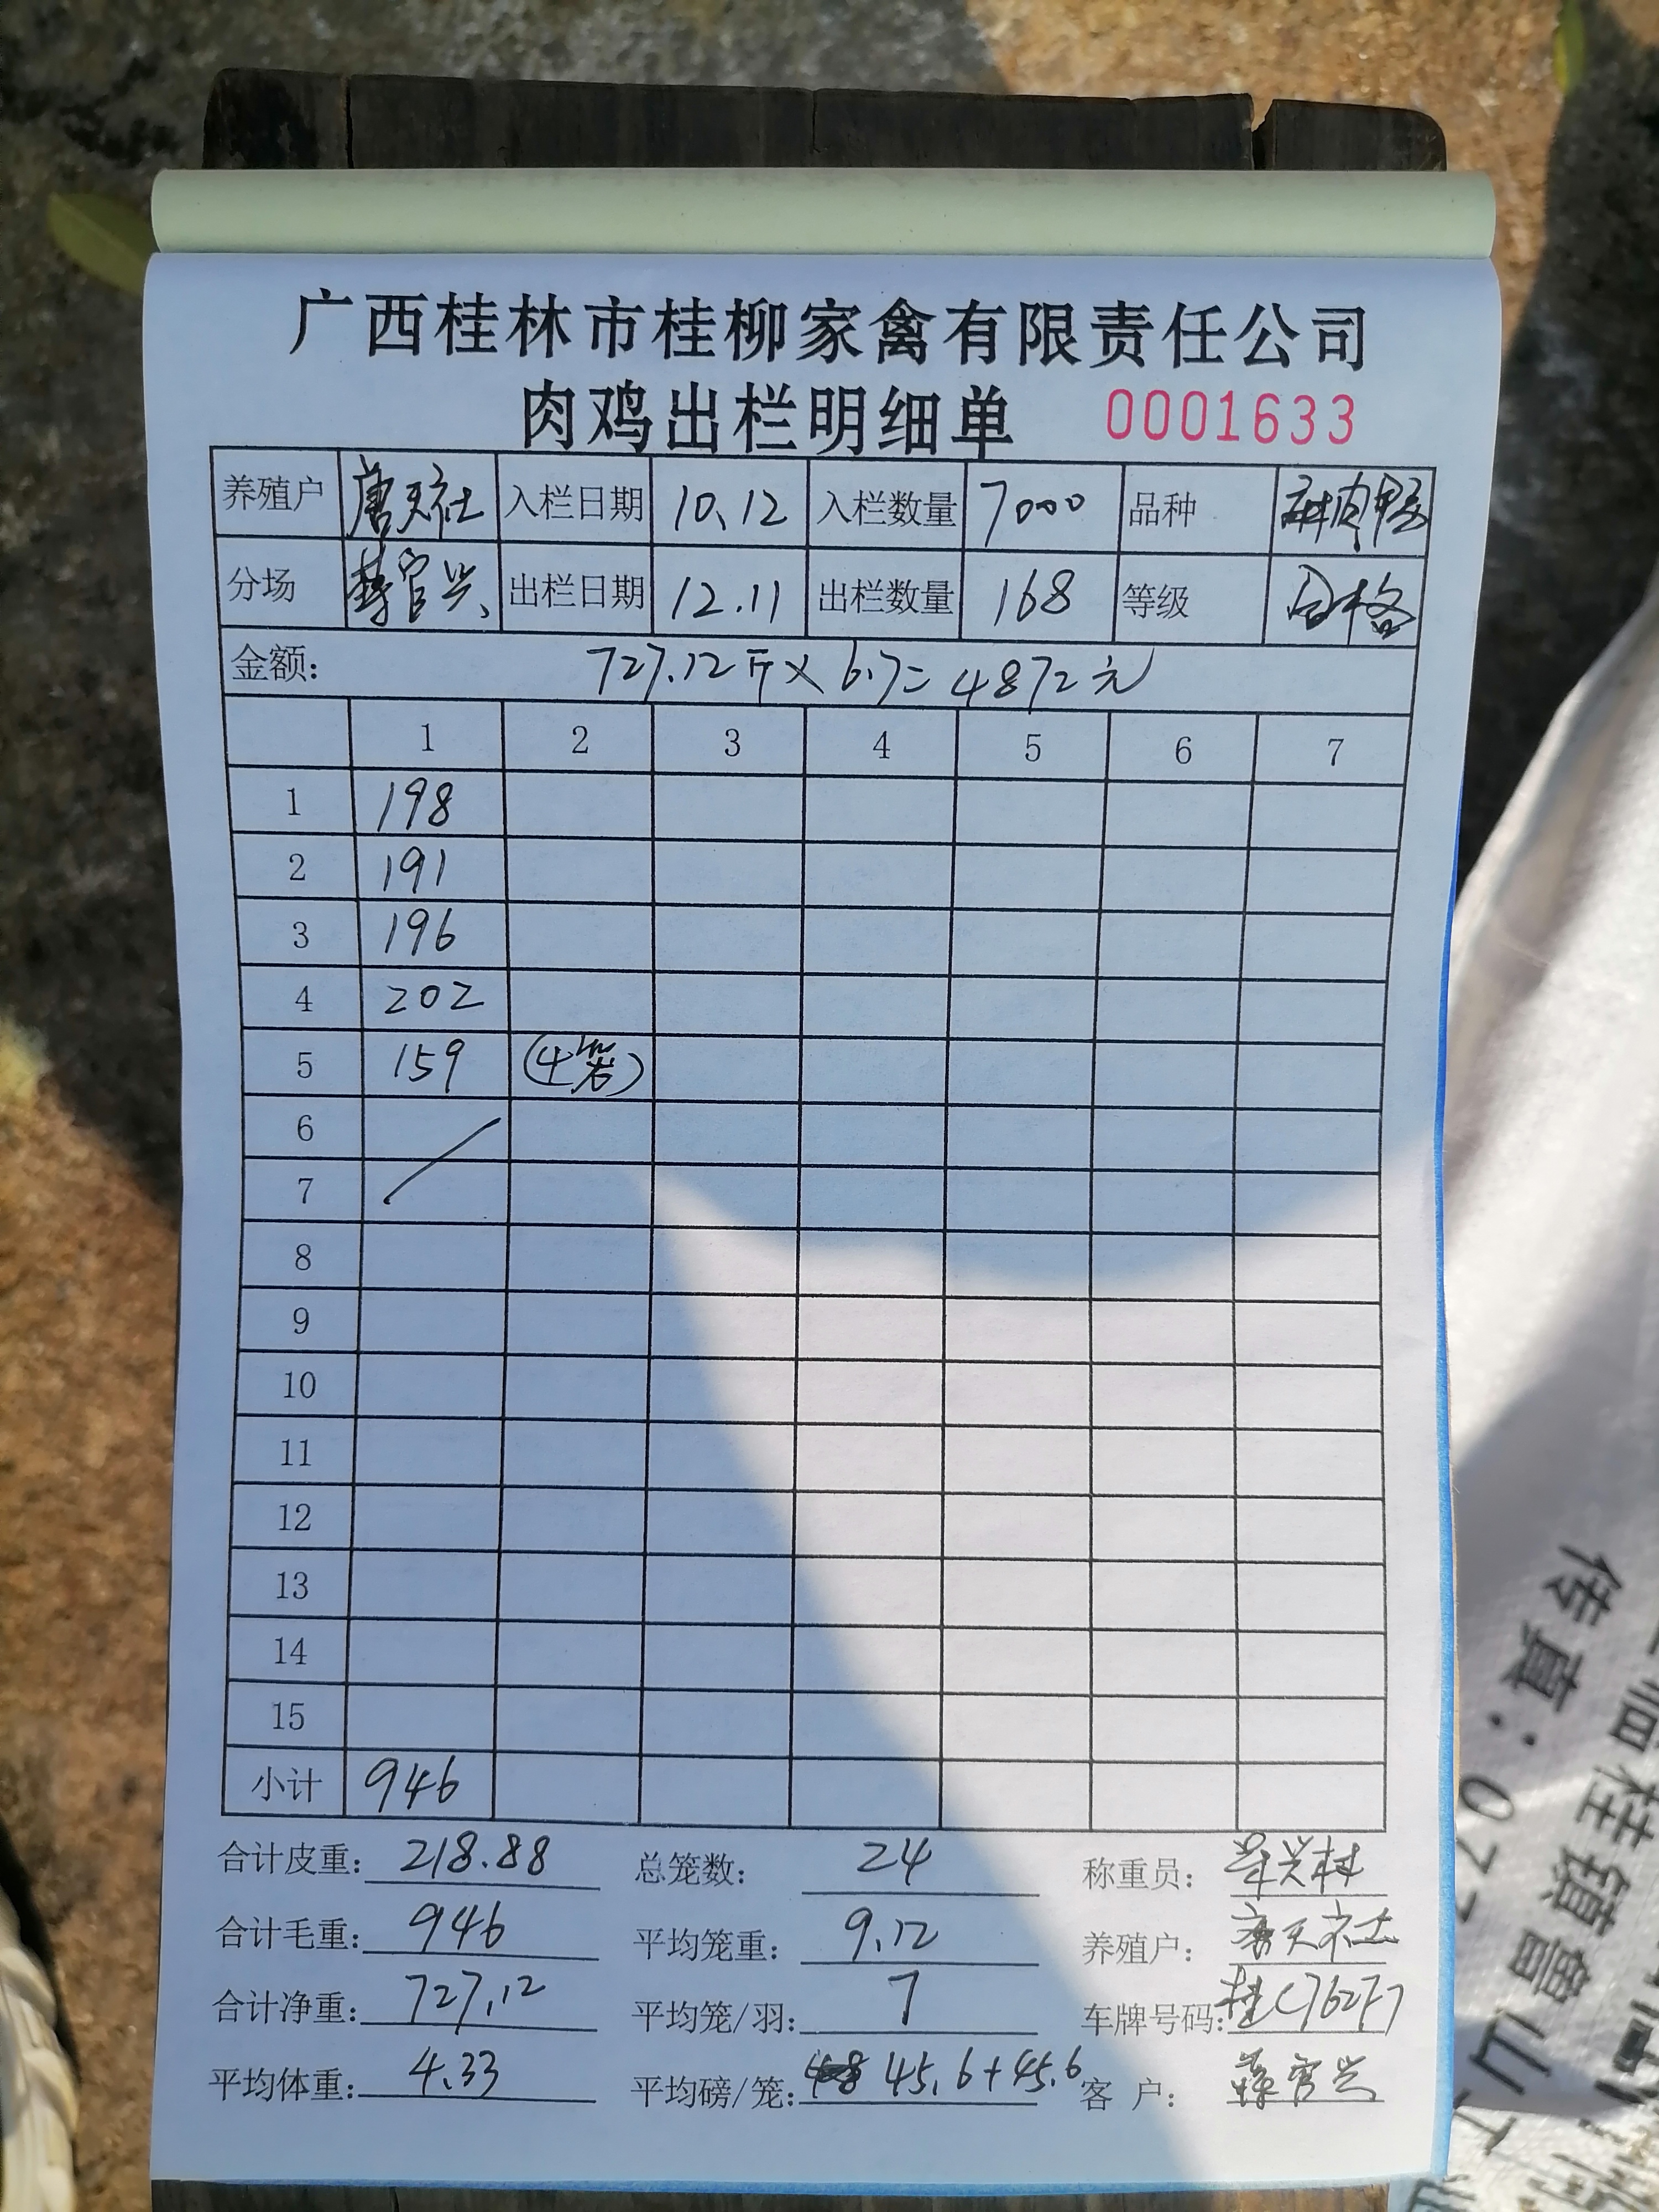 广西桂林市桂柳家禽有限责任公司
肉鸡出栏明细单 0001633
养殖户 唐天社 入栏日期 10.12 入栏数量 7000 品种 麻肉鸭
分场 蒋官兴 出栏日期 12.11 出栏数量 168 等级 合格
金额: 727.12斤×6.7=4872元
1 2 3 4 5 6 7
1 198
2 191
3 196
4 202
5 159 (4笼)
6
7
8
9
10
11
12
13
14
15
小计 946
合计皮重: 218.88 总笼数: 24 称重员: 兴村
合计毛重: 946 平均笼重: 9.12 养殖户: 唐天社
合计净重: 727.12 平均笼/羽: 7 车牌号码: 桂C762F7
平均体重: 4.33 平均磅/笼: 45.6+45.6 客 户: 蒋官兴
传真: 077
临桂镇鲁山